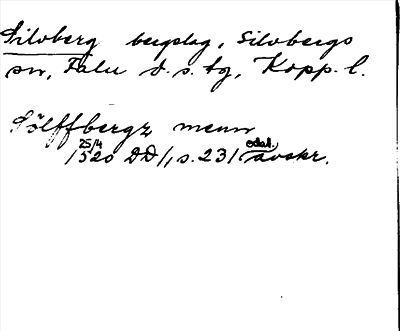 Silvberg bergslag, Silvbergs
sn, Falu d. s. tg, Kopp. l.
Sölffbergz menn
25/4 odat.
1520 DD/1, s. 231 avskr.